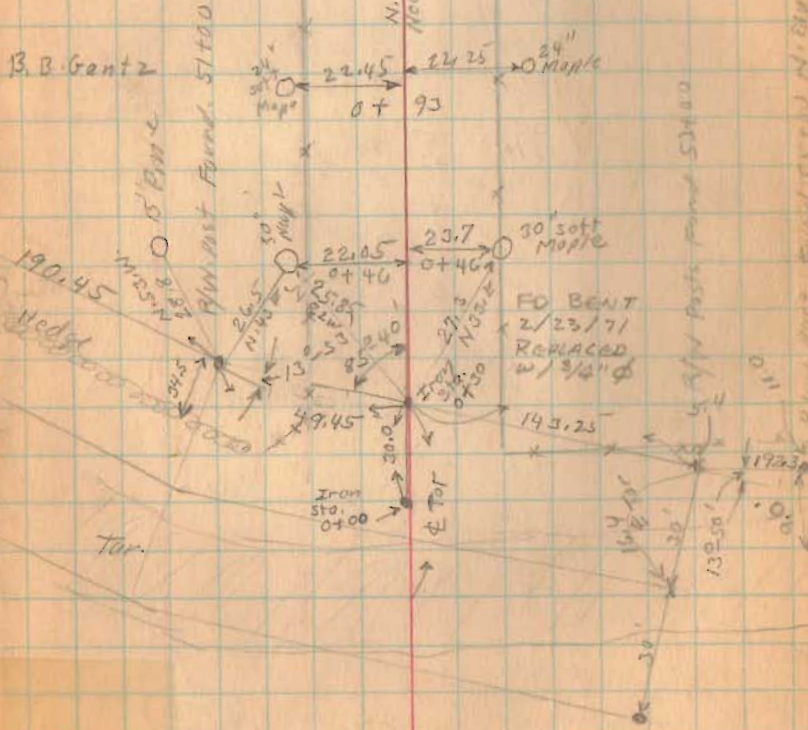 B.B. Gantz
N.
R/W Post Found 51+00
24"
Maple
22.45
22.25
24"
Maple
0+93
15" Pine
30"
Maple
22.05
0+46
23.7
0+46
30" Soft
Maple
190.45
Hedge
N.53.W.
28.8
26.5
N.43
25.85
27.3
N33E
FD BENT
2/23/71
REPLACED
W/ 3/4" Φ
34.5
13°53'
85°40'
Iron
sta.
0+30
49.45
143.25
192.3
30.0
Iron
sta.
0+00
℄ Tar
Tar.
R/W Post Found 53+00
30'
13°50'
30'